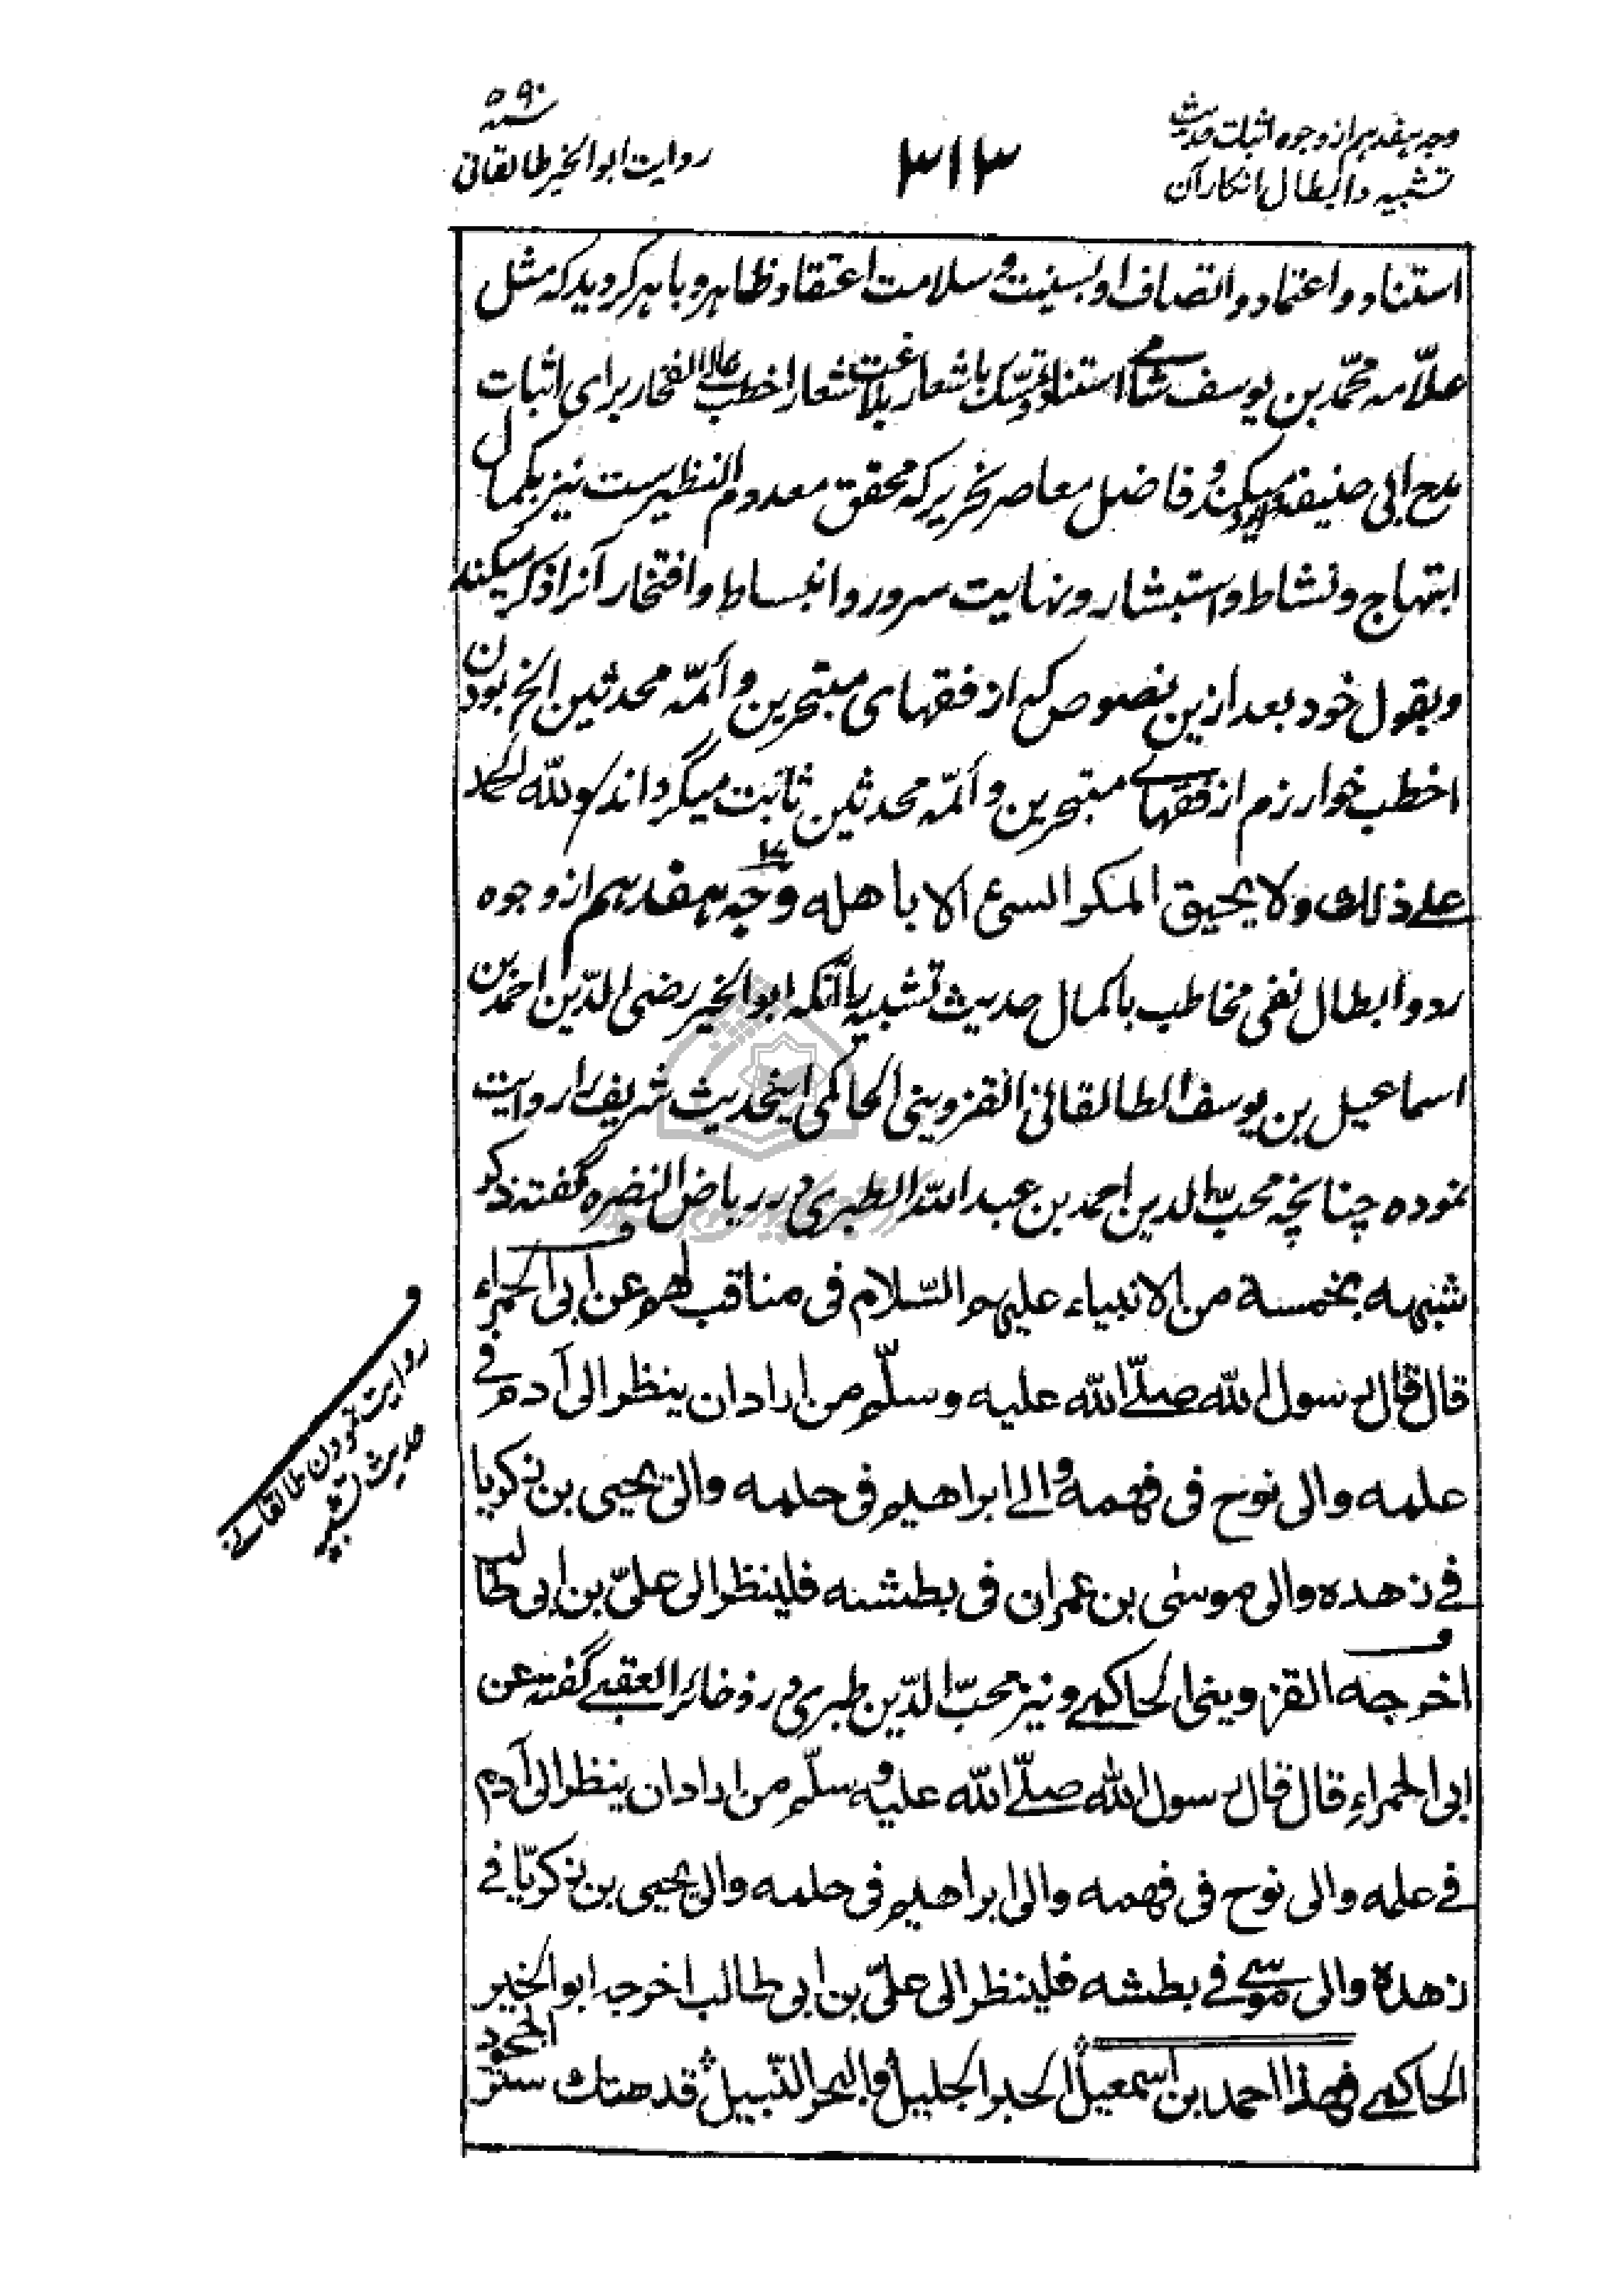 وجه هفدهم از وجوه اثبات حدیث
تشبیه و ابطال انکار آن
۳۱۳
سنه ۵۹۰
روایت ابو الخیر طالقانی
استناد و اعتماد و اتصاف او بسنیت و سلامت اعتقاد ظاهر و باهر گردید که مثل
علّامه محمّد بن یوسف شامی استناد و تمسّک باشعار بلاغت شعار اخطب عالی الفخار برای اثبات
مدح ابی حنیفه میکند و فاضل معاصر نحریر که محقق معدوم النظیرست نیز بکمال
ابتهاج و نشاط و استبشار و نهایت سرور و انبساط و افتخار آنرا ذکر میکند
و بقول خود بعد ازین نصوص که از فقهای متبحرین و أئمّه محدثین الخ بودن
اخطب خوارزم از فقهای متبحرین و أئمّه محدثین ثابت میگرداند و لله الحمد
علی ذلک ولا یحیق المکر السیئ الا باهله وجه هفدهم از وجوه
۱۷
رد و ابطال نفی مخاطب باکمال حدیث تشبیه را آنکه ابو الخیر رضی الدّین احمد بن
اسماعیل بن یوسف الطالقانی القزوینی الحاکمی اینحدیث شریف را روایت
نموده چنانچه محبّ الدین احمد بن عبد الله الطبری در ریاض النضره گفته ذکر
شبهه بخمسة من الانبیاء علیهم السّلام فی مناقب لهم عن ابی الحمراء
قال قال رسول الله صلّی الله علیه وسلّم من اراد ان ینظر الی آدم فی
علمه والی نوح فی فهمه والی ابراهیم فی حلمه والی یحیی بن زکریا
فی زهده والی موسی بن عمران فی بطشه فلینظر الی علیّ بن ابی طالب
اخرجه القزوینی الحاکمی و نیز محبّ الدّین طبری در ذخائر العقبی گفته عن
ابی الحمراء قال قال رسول الله صلّی الله علیه وسلّم من اراد ان ینظر الی آدم
فی علمه والی نوح فی فهمه والی ابراهیم فی حلمه والی یحیی بن زکریّا فی
زهده والی موسی فی بطشه فلینظر الی علیّ بن ابی طالب اخرجه ابو الخیر
الحاکمی فهذا احمد بن اسمعیل الحبر الجلیل والبحر النّبیل قد هتک ستر الجحود
روایت نمودن طالقانی
حدیث تشبیه